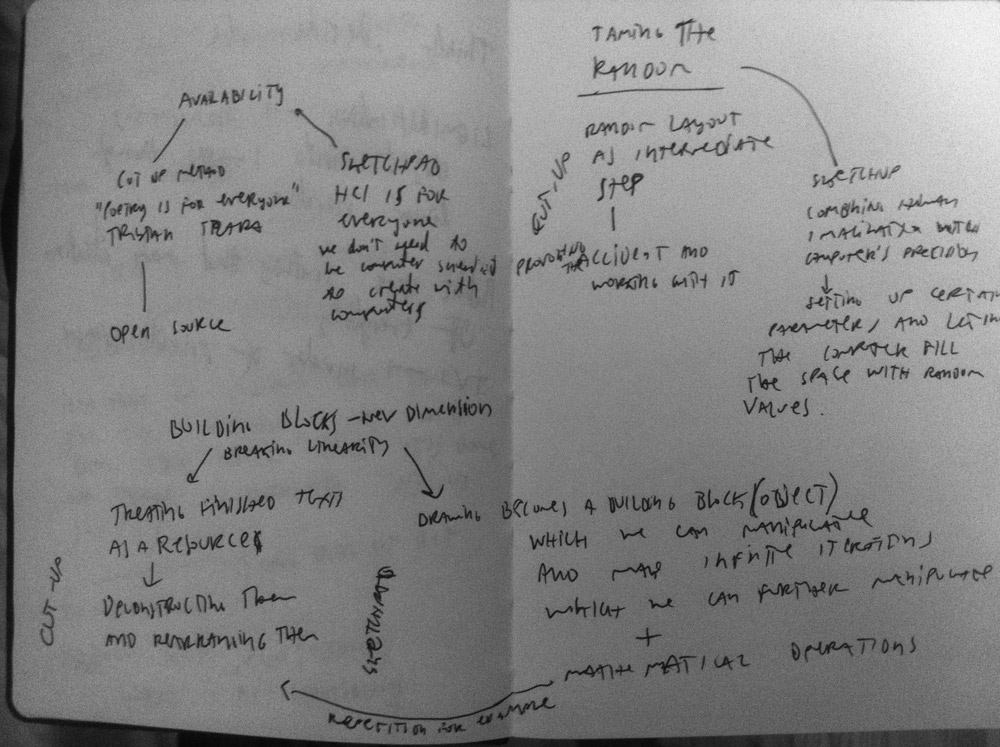 AVALABILITY
CUT UP METHOD
"POETRY IS FOR everyone"
TRISTAN TZARA
OPEN SOURCE
SKETCHPAD
HCI IS FOR
everyone
we don't need to
be computer scientist
to create with
computers
BUILDING BLOCKS - NEW DIMENSION
BREAKING LINEARITY
TREATING FINISHED TEXTS
AS A RESOURCE
DECONSTRUCTING THEM
AND REARRANGING THEM
CUT-UP
SKETCHPAD
DRAWING BECOMES A BUILDING BLOCK (OBJECT)
WHICH WE CAN MANIPULATE
AND MAKE INFINITE ITERATIONS
WHICH WE CAN FURTHER MANIPULATE
+
MATHEMATICAL OPERATIONS
REPETITION FOR example
TAMING THE
RANDOM
RANDOM LAYOUT
AS INTERMEDIATE
STEP
CUT-UP
PROVOKING THE ACCIDENT AND
WORKING WITH IT
COMBINING HUMAN
IMAGINATION WITH
COMPUTER'S PRECISION
SETTING UP CERTAIN
PARAMETERS, AND LETING
THE COMPUTER FILL
THE SPACE WITH RANDOM
VALUES.